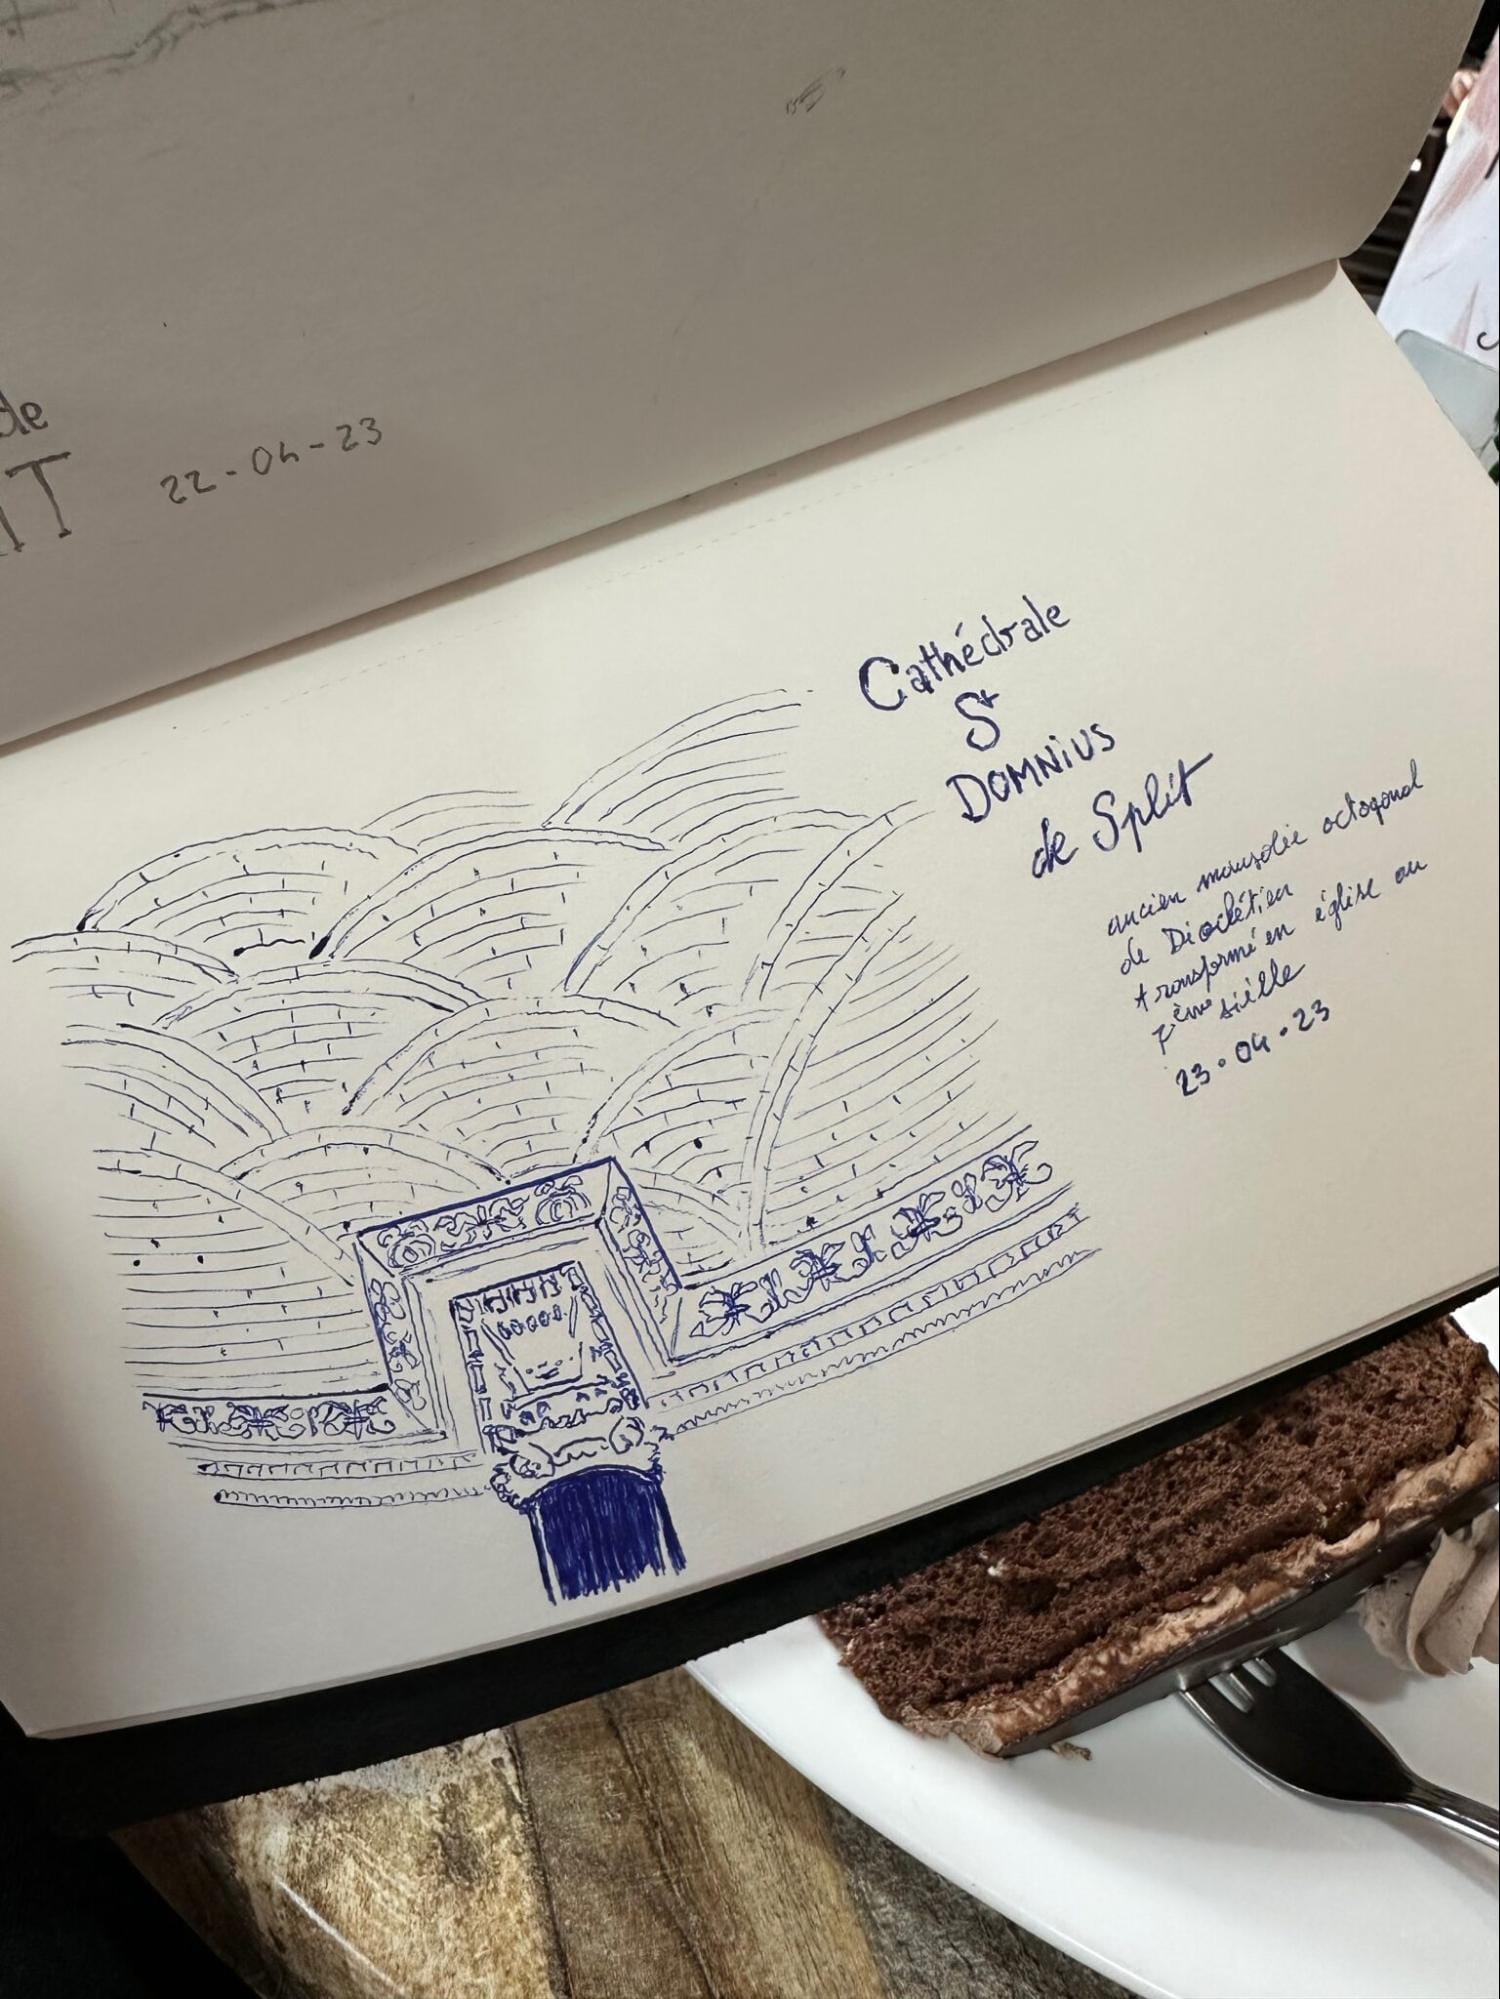 de
IT
22-04-23
Cathédrale
St
DOMNIUS
de Split
ancien mausolée octogonal
de Dioclétien
transformé en église au
7ème siélle
23.04.23